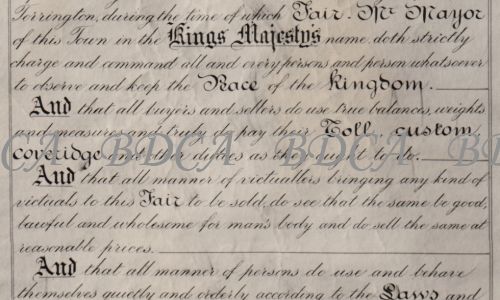 Torrington, during the time of which Fair. Mr Mayor
of this Town in the Kings Majesty's name doth strictly
charge and command all and every persons and person whatsoever
to observe and keep the Peace of the Kingdom.
And that all buyers and sellers do use true balances, weights
and measures and truly do pay their Toll, custom,
coveridge and other duties as they ought to do.
And that all manner of victuallers bringing any kind of
victuals to this Fair to be sold, do see that the same be good,
lawful and wholesome for man's body and do sell the same at
reasonable prices.
And that all manner of persons do use and behave
themselves quietly and orderly according to the Laws and
BDCA BDCA